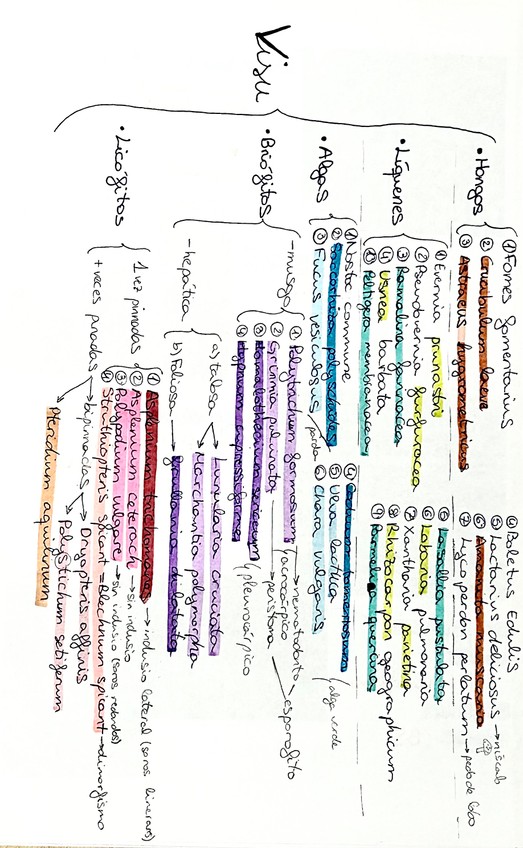 Visu
• Hongos
① Fomes fomentarius
② Crucibulum laeve
③ Astraeus hygrometricus
④ Boletus Edulis
⑤ Lactarius deliciosus → níscalo
⑥ Amanita muscaria
⑦ Lycoperdon perlatum → pedo de lobo
• Líquenes
① Evernia prunastri
② Pseudevernia furfuracea
③ Ramalina farinacea
④ Usnea barbata
⑤ Peltigera membranacea
⑥ Lasallia pustulata
⑥ Lobaria pulmonaria
⑦ Xanthoria parietina
⑧ Rhizocarpon geographicum
⑨ Parmelia quercina
• Algas
① Nostoc commune
② Saccorhiza polyschides
③ Fucus vesiculosus
parda
④ Codium tomentosum
⑤ Ulva lactuca
⑥ Chara vulgaris
alga verde
• Briófitos
- musgo
① Polytrichum formosum
② Grimmia pulvinata
③ Homalothecium sericeum
④ Hypnum cupressiforme
acrocárpico
pleurocárpico
→ peristoma
→ esporofito
- hepática
a) talosa
→ Lunularia cruciata
→ Marchantia polymorpha
b) Foliosa → Frullania dilatata
• Licófitos
1 vez pinnadas
① Asplenium trichomanes → indusio lateral (soros lineares)
② Asplenium ceterach → sin indusio
③ Polypodium vulgare → sin indusio (soros redondos)
④ Struthiopteris spicant = Blechnum spicant → dimorfismo
+ veces pinnadas
→ bipinnadas
→ Dryopteris affinis
→ Polystichum setiferum
→ Pteridium aquilinum